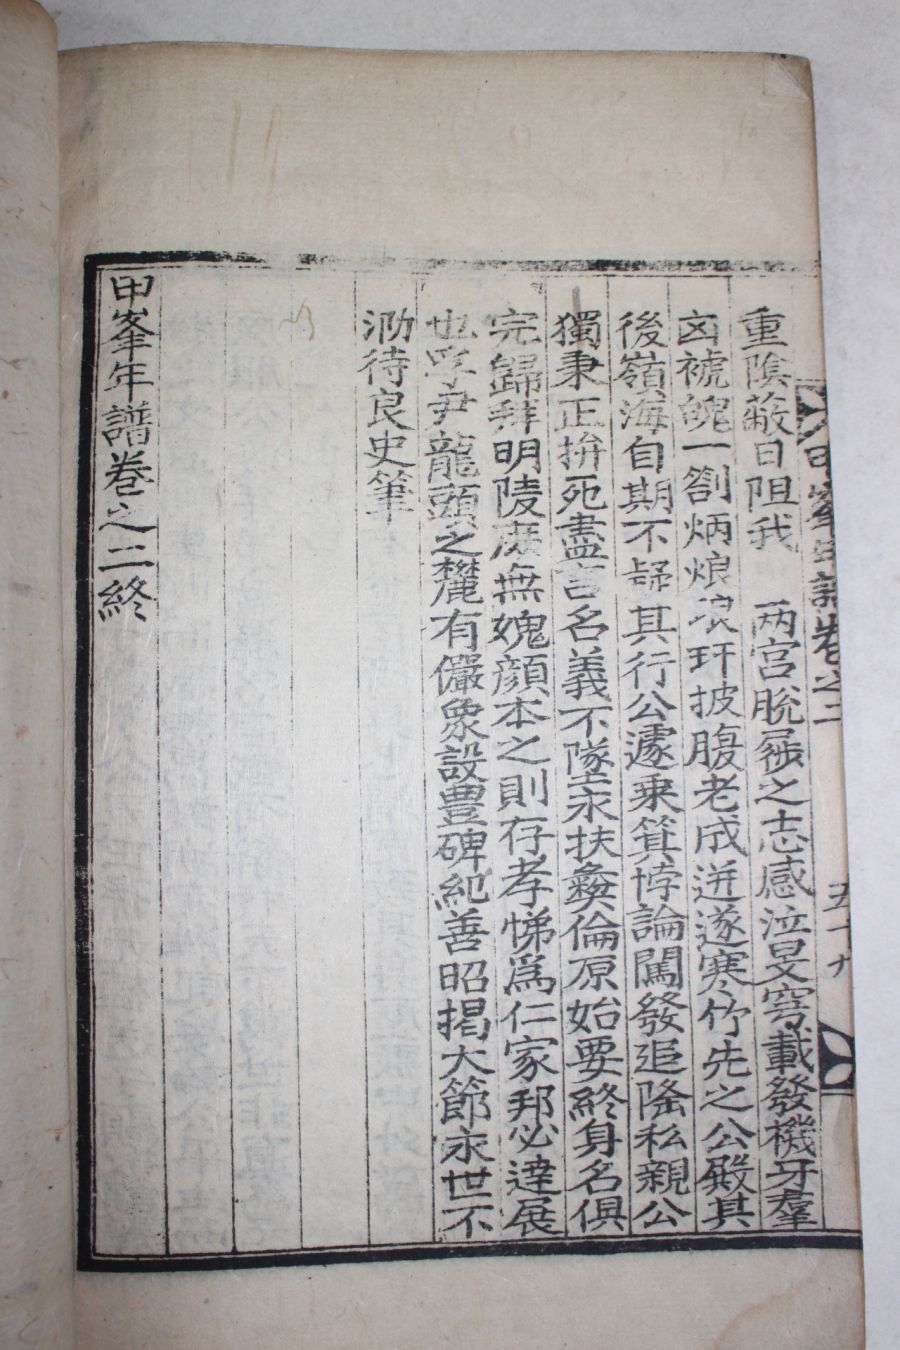 甲峯年譜卷之二
五十九
重陰蔽日阻我 兩宮脫屣之志感泣旻穹載發機牙羣
凶褫魄一劄炳烺琅玕披腹老成迸遂寒竹先之公殿其
後嶺海自期不疑其行公遽乘箕悖論闖發追隆私親公
獨秉正拚死盡言名義不墜永扶彜倫原始要終身名俱
完歸拜明陵庶無媿顔本之則存孝悌爲仁家邦必達展
也孚尹龍頭之麓有儼象設豊碑紀善昭揭大節永世不
泐待良史筆
甲峯年譜卷之二終